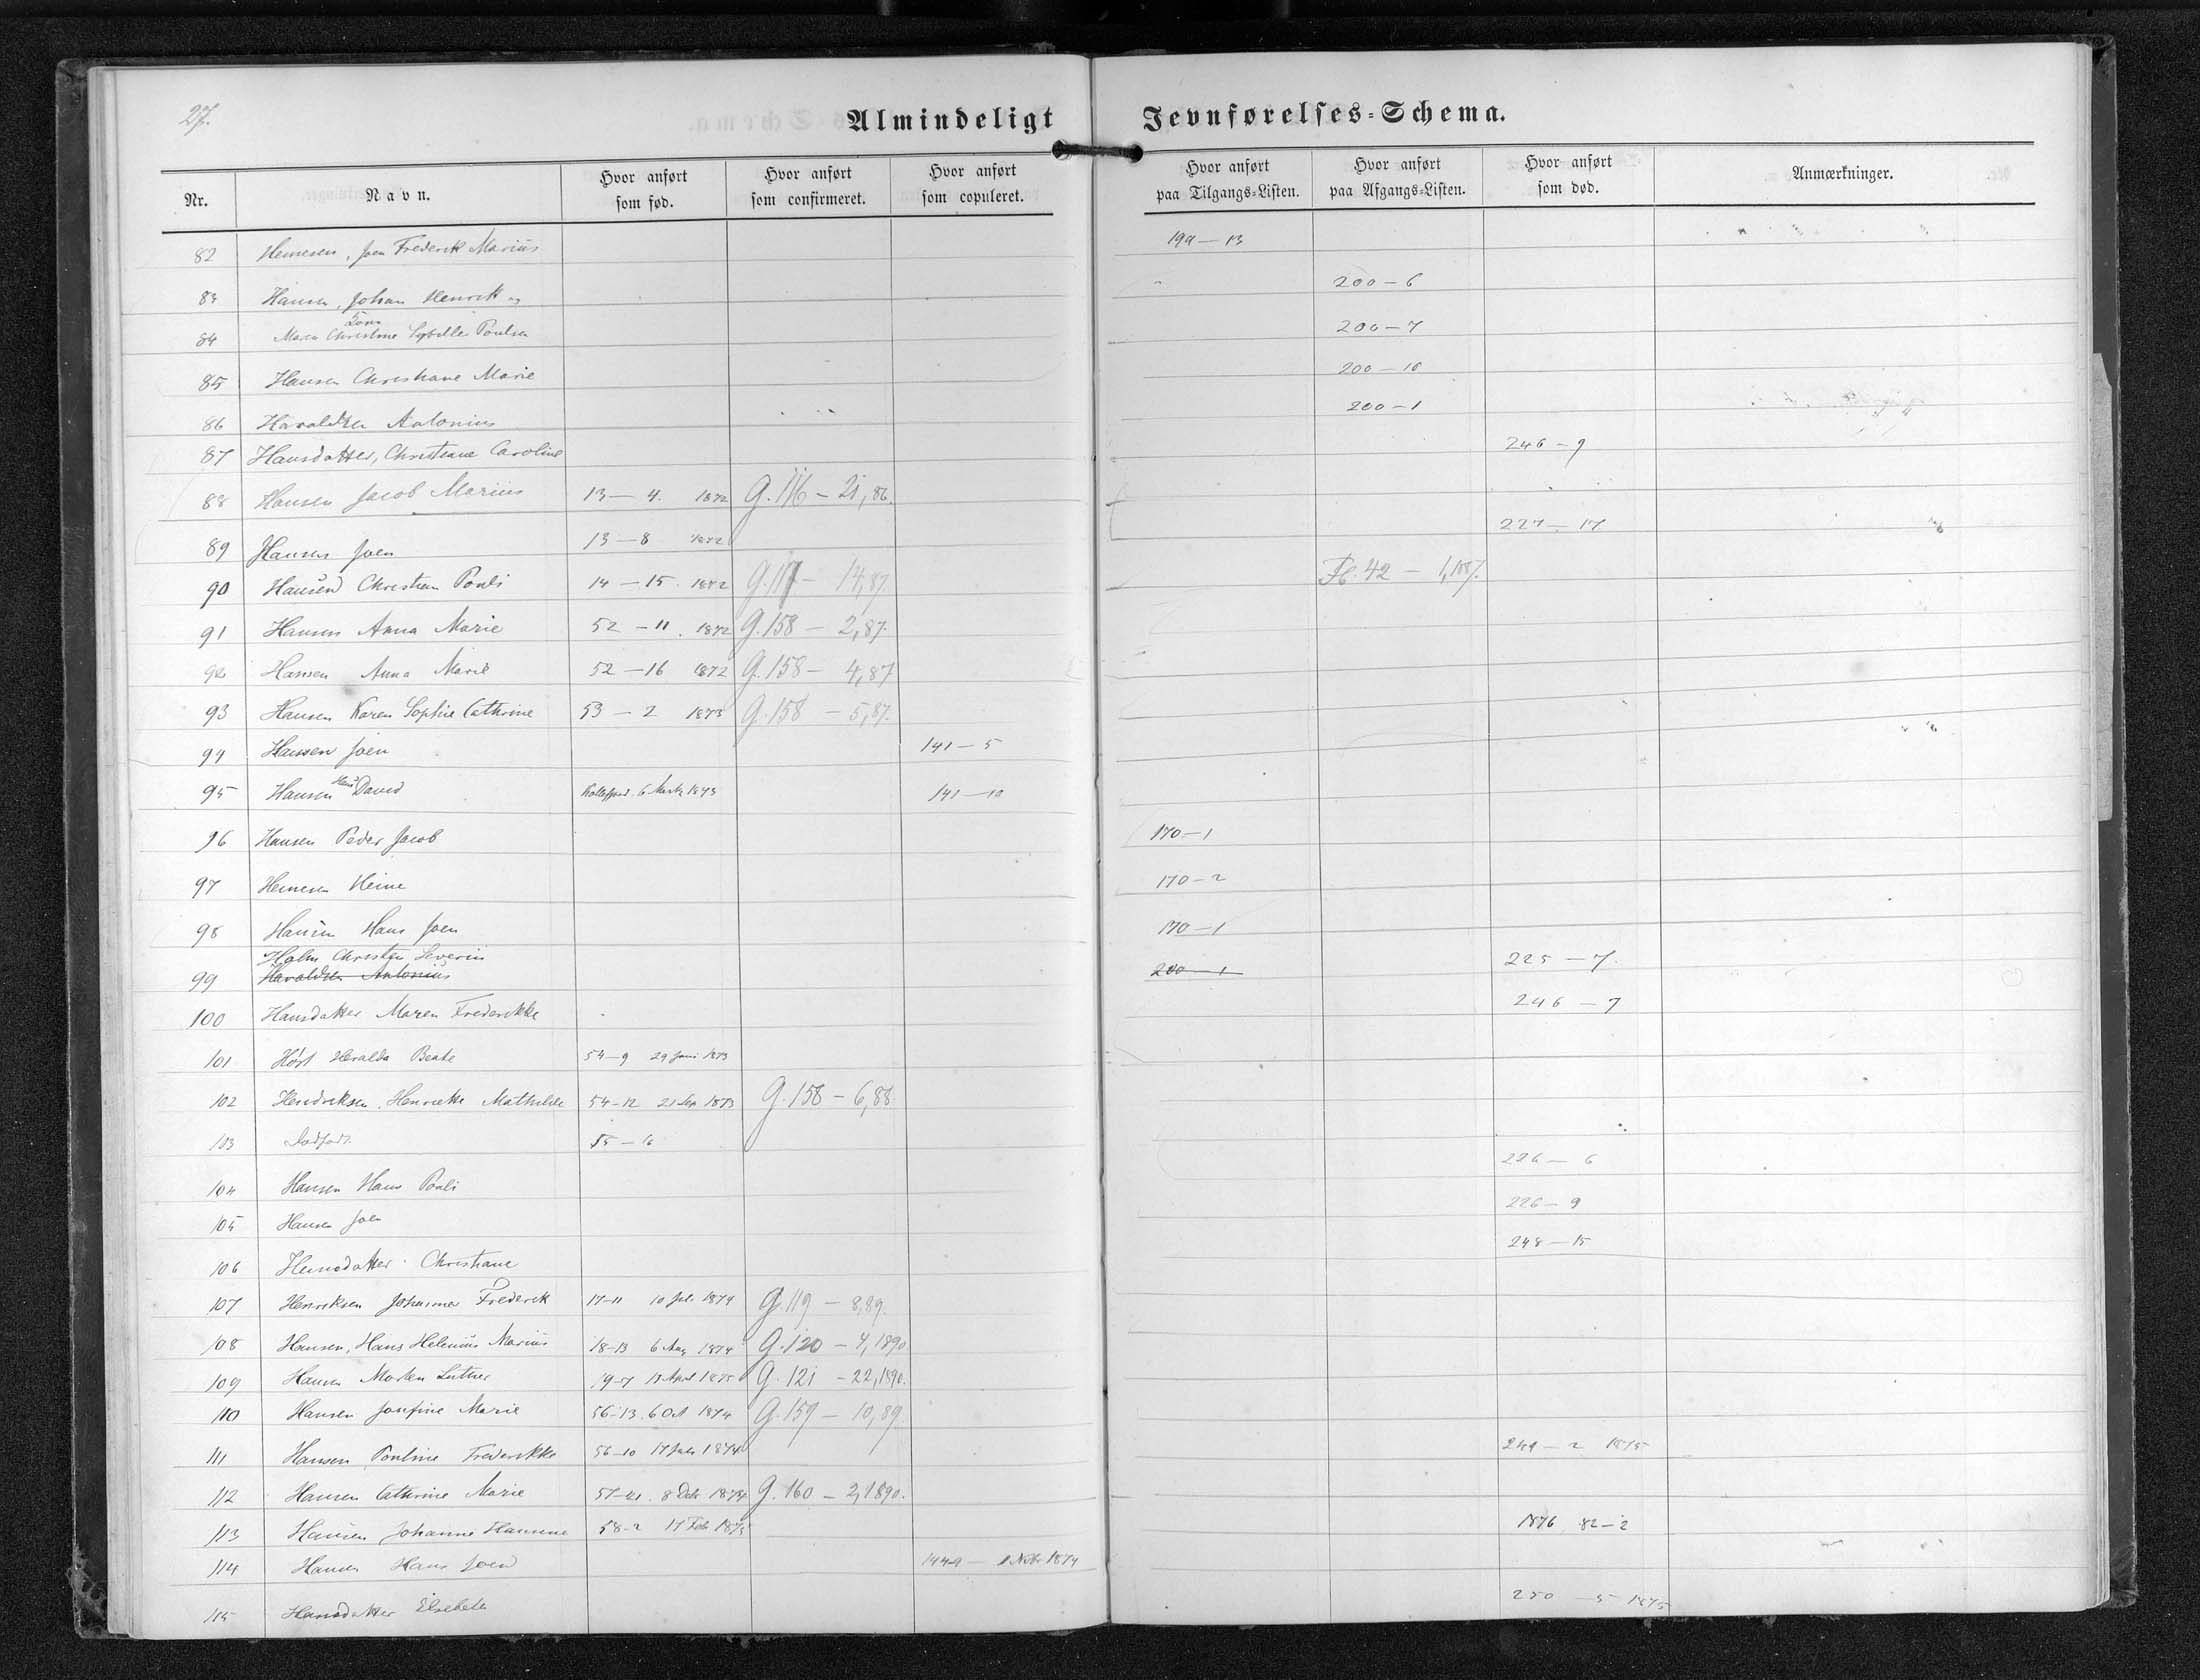 27.
Almindeligt Jevnførelses-Schema.
Nr. Navn. Hvor anført som fød. Hvor anført som confirmeret. Hvor anført som copuleret. Hvor anført paa Tilgangs-Listen. Hvor anført paa Afgangs-Listen. Hvor anført som død. Anmærkninger.
82 Heinesen, Joen Frederik Marius 199-13
83 Hansen, Johan Henrik og 200-6
Kone
84 Maren Christine Sybille Poulsen 200-7
85 Hansen Christiane Marie 200-10
86 Haraldsen Antonius 200-1
87 Hansdatter, Christiane Caroline 246-9
88 Hansen Jacob Marius 13-4. 1872 G. 116-21,86.
89 Hansen Joen 13-8 1872 227-17
90 Hansen Christian Pouli 14-15. 1872 G. 117-14,87. Fl. 42-1,1887.
91 Hansen Anna Marie 52-11. 1872 G. 158-2,87.
92 Hansen Anna Marie 52-16 1872 G. 158-4,87
93 Hansen Karen Sophie Cathrine 53-2 1873 G. 158-5,87.
94 Hansen Joen 141-5
95 Hansen Hans David Kollefjord. 6 Marts 1873 141-10
96 Hansen Peder Jacob 170-1
97 Heinesen Heine 170-2
98 Hansen Hans Joen 170-1
Holm Christen Severin
99 Haraldsen Antonius 200-1 225-7.
100 Hansdatter Maren Frederikke 246-7
101 Heralda Beate 54-9 29 Juni 1873
102 Hendriksen, Henriette Mathilde 54-12 21 Sep 1873 G. 158-6,88
103 Dødfødt. 55-16
104 Hansen Hans Pouli 226-6
105 Hansen Joen 226-9
106 Heinesdatter Christiane 248-15
107 Henriksen Johannes Frederik 17-11 10 Jul. 1874 G. 119-8,89.
108 Hansen, Hans Helenius Marius 18-13 6 Aug 1874 G. 120-4,1890
109 Hansen Morten Luther 19-7 13 April 1875 G. 121-22,1890.
110 Hansen Josefine Marie 56-13. 6 Oct 1874 G. 159-10,89.
111 Hansen Pouline Frederikke 56-10 17 Juli 1874 249-2 1875
112 Hansen Cathrine Marie 57-21. 8 Dcb 1874 G. 160-2,1890.
113 Hansen Johanne 58-2 17 Feb 1875 1876 82-2
114 Hansen Hans Joen 144-9 - 1 Nvbr 1874
115 Hansdatter Elsebeth 250-5 1875